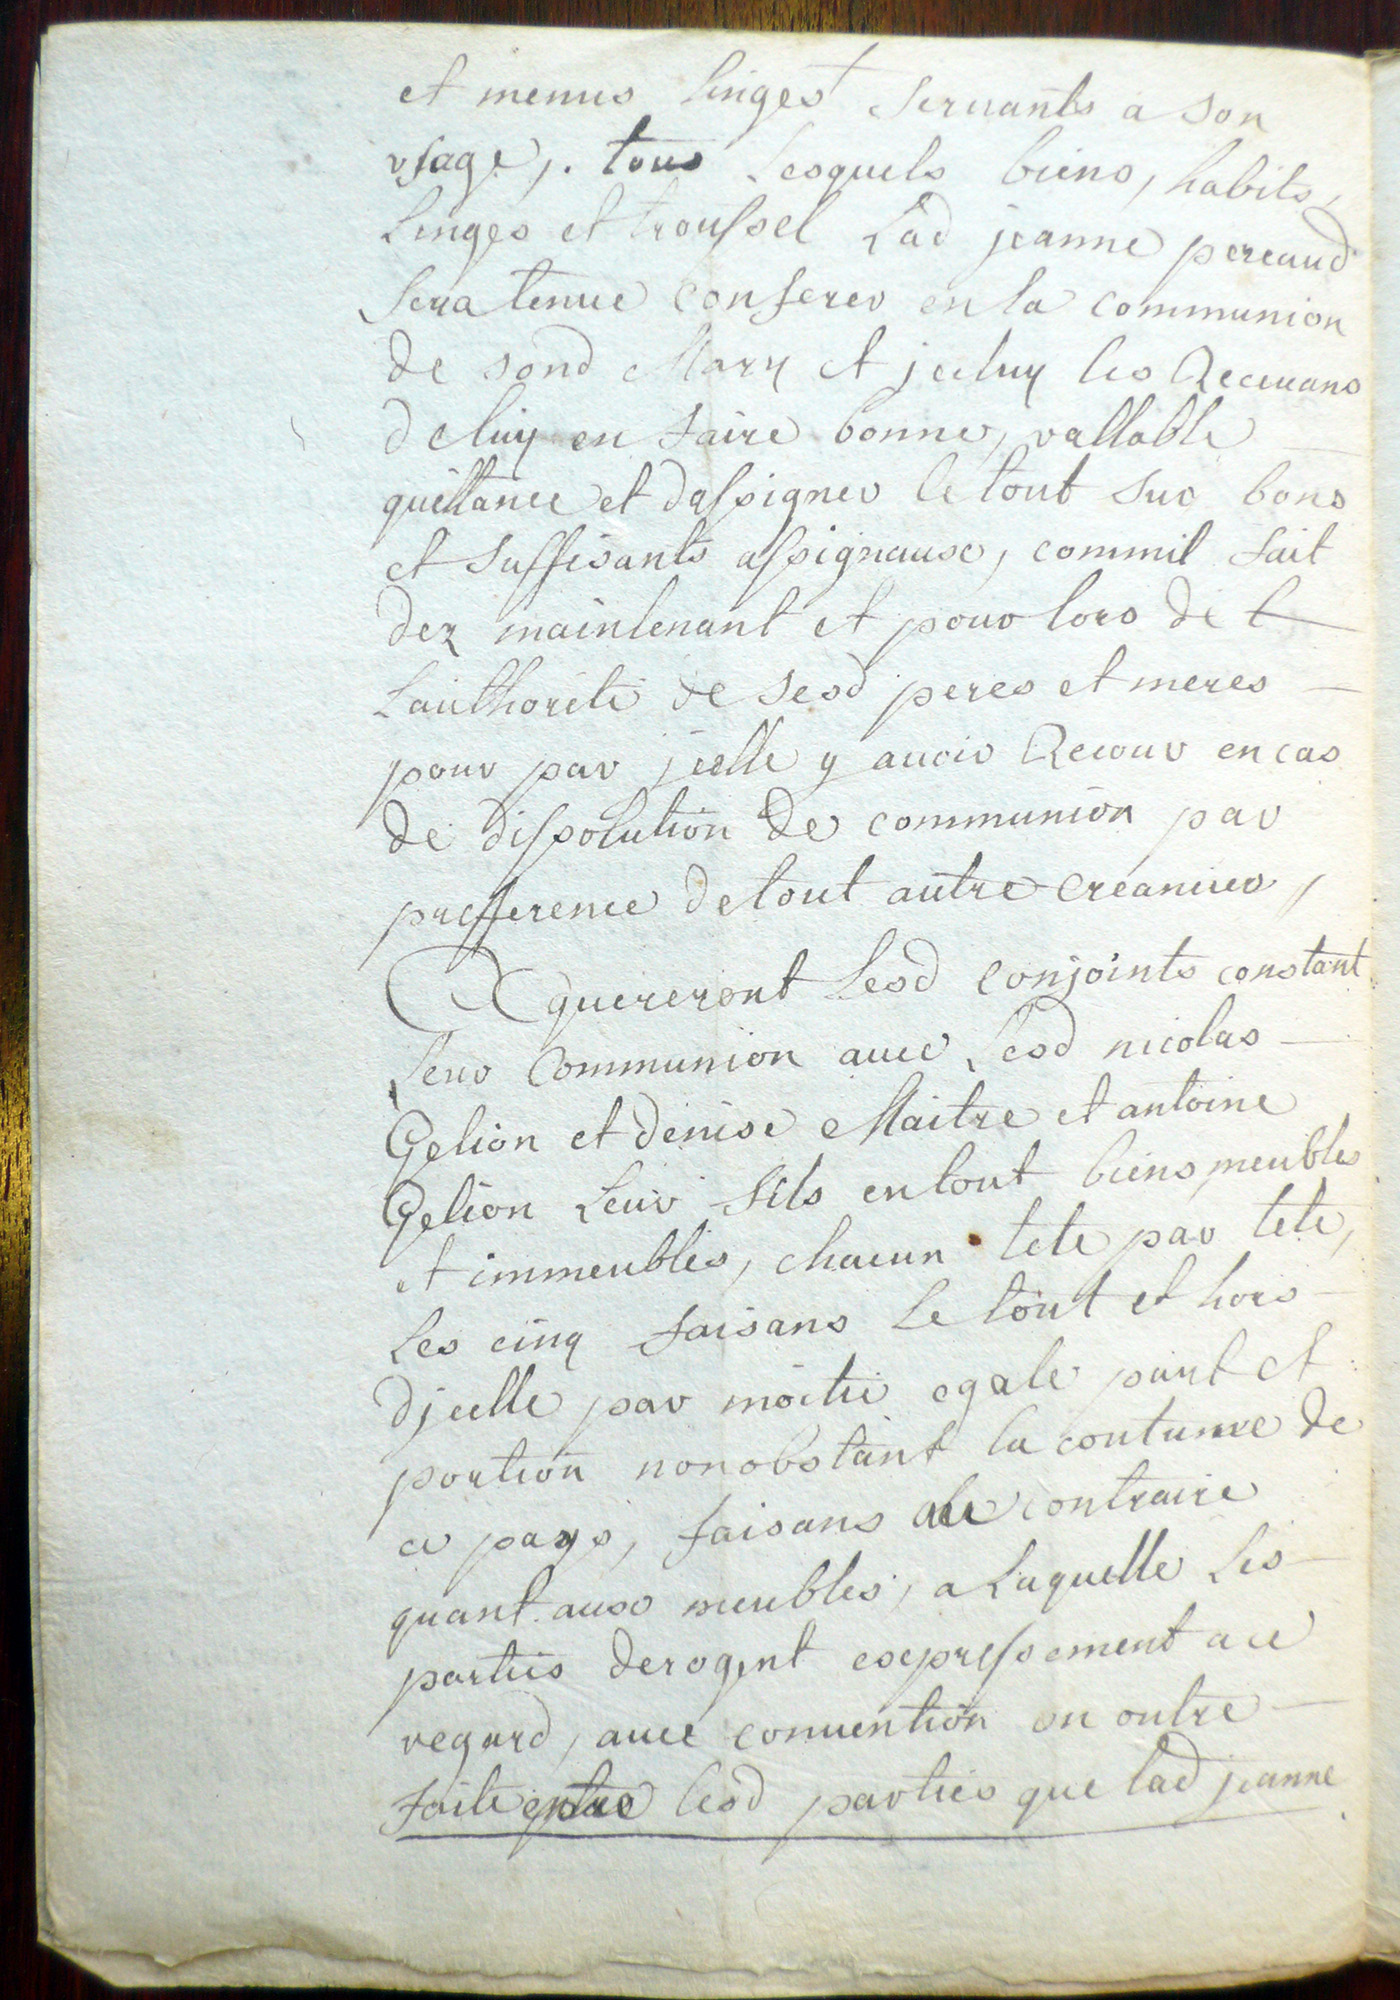 et menus linges servants a son
usage, . tous lesquels biens, habits,
linges et troussel lad jeanne pereaud
sera tenue conferer en la communion
de sond Mary et jceluy les Recevans
deluy en faire bonne, vallable
quittance et dassigner le tout sur bons
et suffisants assignaux, commil fait
dez maintenant et pour lors de l
lauthorite de sesd peres et meres
pour par jcelle y avoir Recour en cas
de dissolution de communion par
prefference de tout autre creancier,
Aquereront lesd conjoints constant
leur communion avec lesd nicolas
Gelion et denise Maitre et antoine
Gelion leur fils en tout biens meubles
et immeubles, chacun tete par tete,
les cinq faisans le tout et hors
djcelle par moitie egale part et
portion nonobstant la coutume de
ce pays, faisans au contraire
quant aux meubles, a laquelle les
parties derogent expressement a ce
regard, avec convention en outre
faite entre lesd parties que lad jeanne